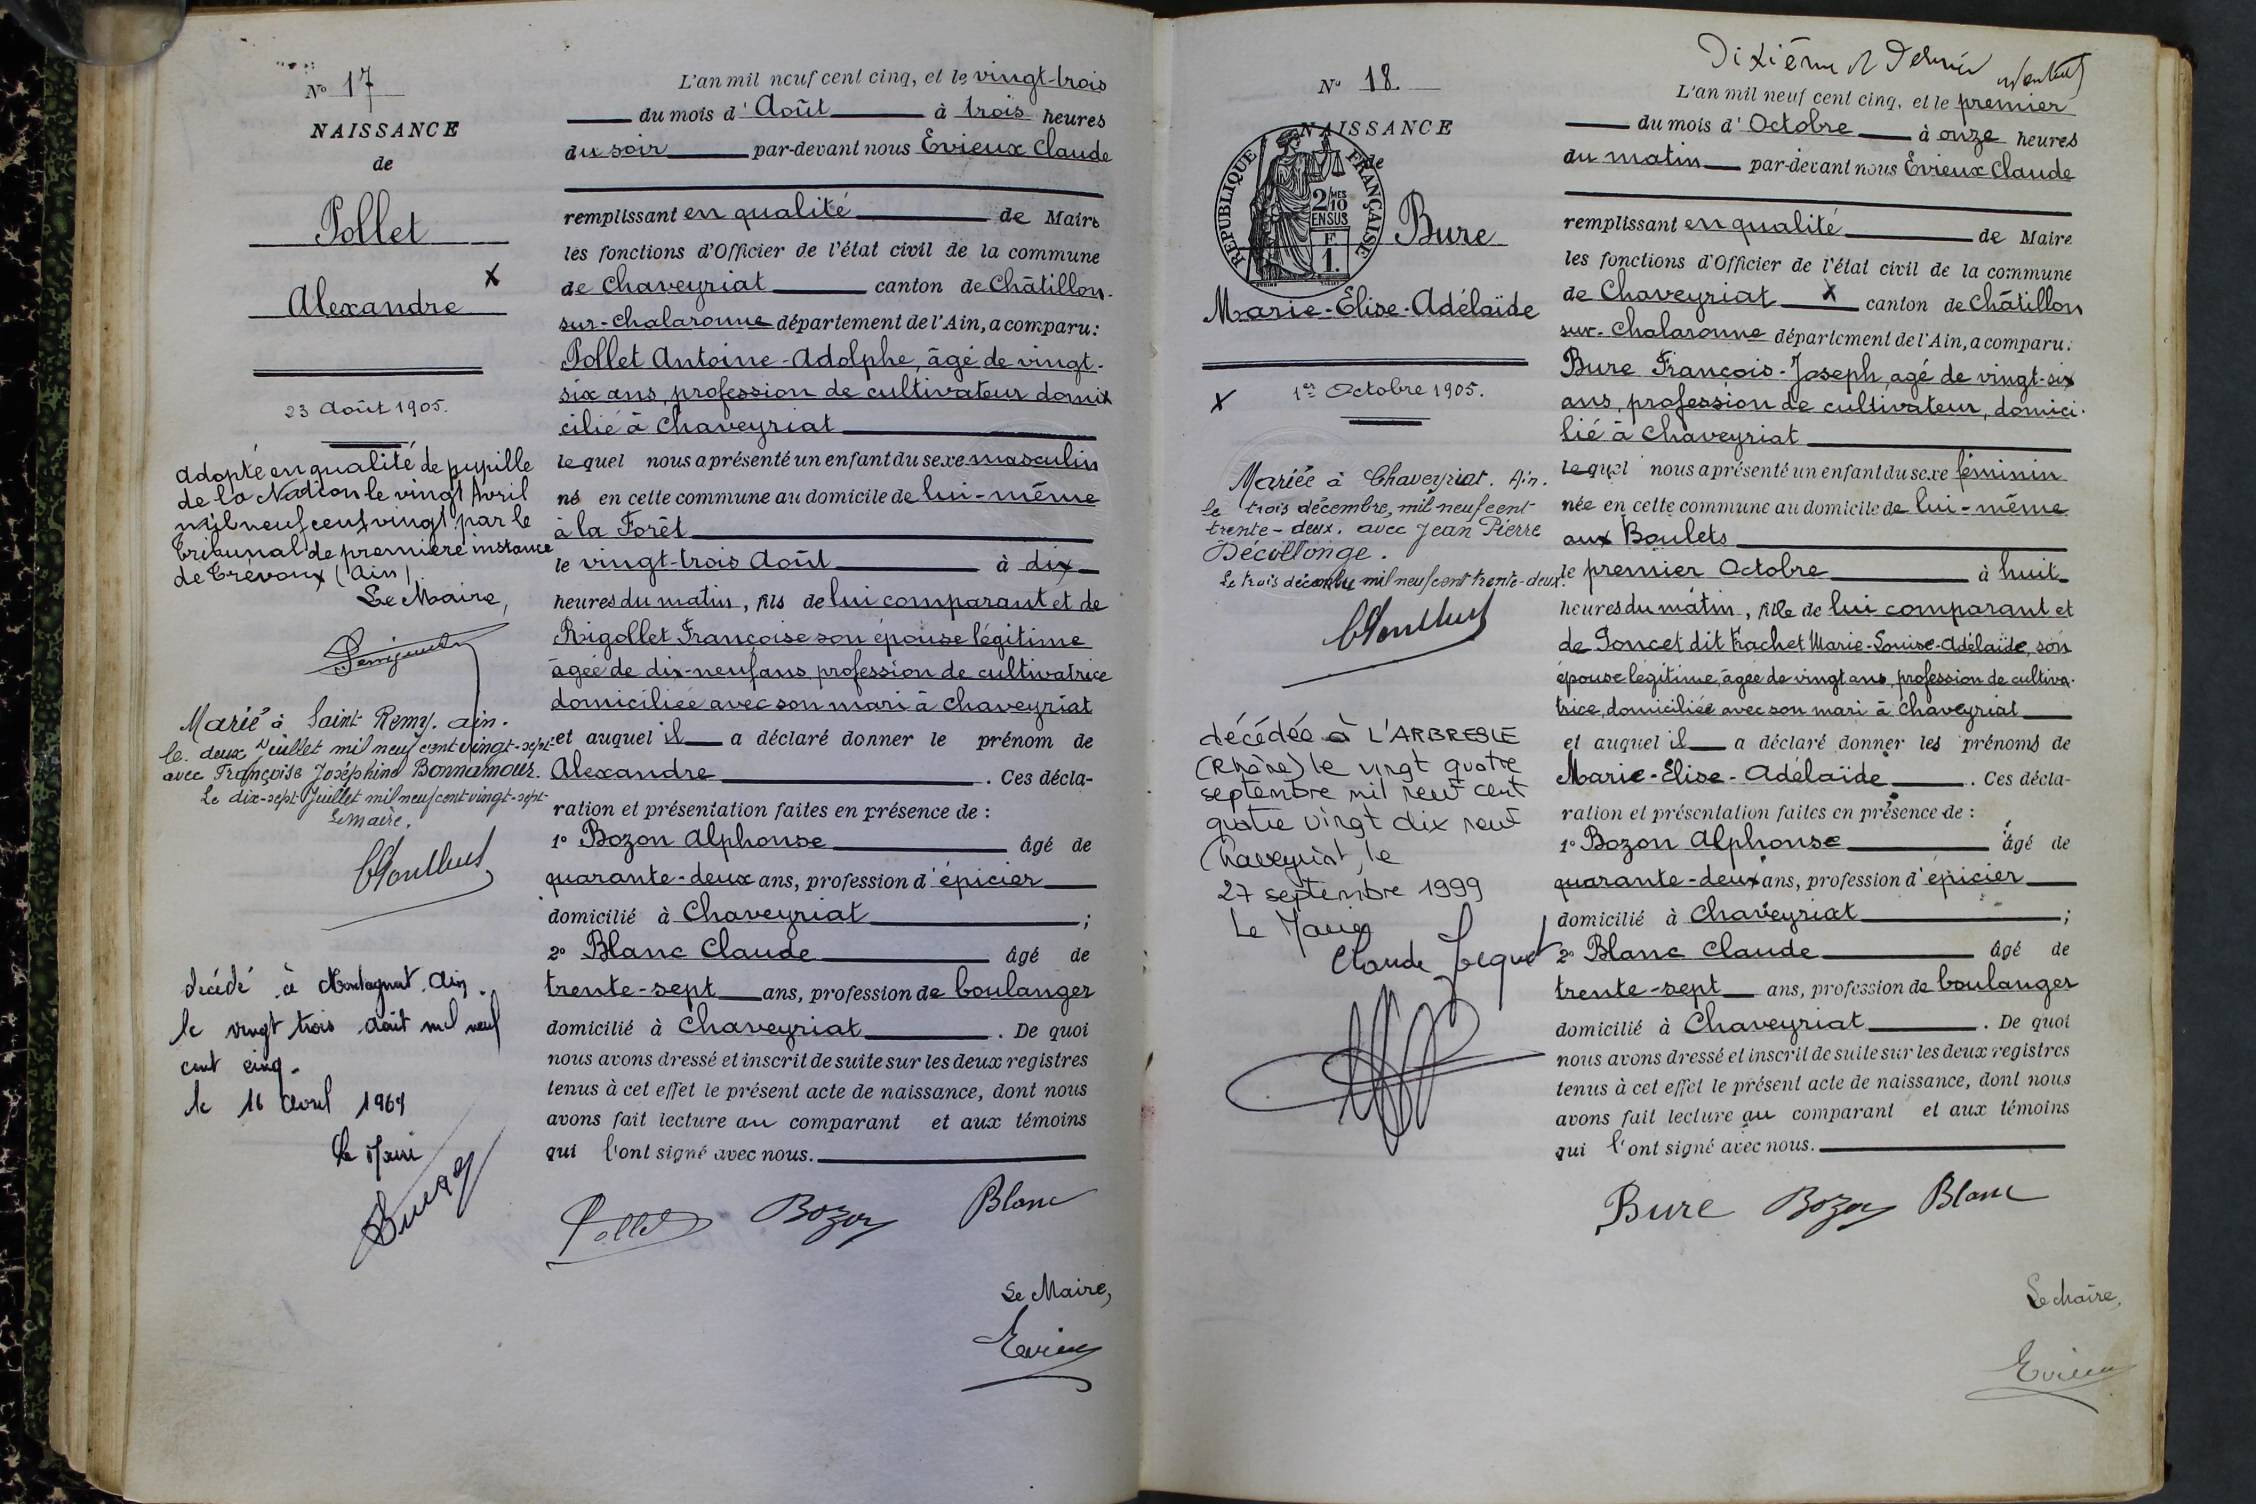 N° 17
NAISSANCE
de
Pollet
Alexandre
23 Août 1905.
adopté en qualité de pupille
de la Nation le vingt Avril
mil neuf cent vingt par le
tribunal de première instance
de Trévoux (Ain)
Le Maire,
Marié à Saint Remy. ain.
le deux Juillet mil neuf cent vingt-sept
avec Françoise Joséphine Bonnamour.
Le dix-sept Juillet mil neuf cent vingt-sept
Le Maire.
décédé à Montagnat. Ain.
le vingt trois août mil neuf
cent cinq.
le 16 Avril 1969
Le Maire
L'an mil neuf cent cinq, et le vingt-trois
du mois d'Août à trois heures
du soir par-devant nous Evieux Claude
remplissant en qualité de Maire
les fonctions d'Officier de l'état civil de la commune
de Chaveyriat canton de Châtillon-
sur-Chalaronne département de l'Ain, a comparu:
Pollet Antoine-Adolphe, âgé de vingt-
six ans, profession de cultivateur domi
cilié à Chaveyriat
lequel nous a présenté un enfant du sexe masculin
né en cette commune au domicile de lui-même
à la Forêt
le vingt-trois Août à dix
heures du matin, fils de lui comparant et de
Rigollet Françoise son épouse légitime
âgée de dix-neuf ans profession de cultivatrice
domiciliée avec son mari à Chaveyriat
et auquel il a déclaré donner le prénom de
Alexandre . Ces décla-
ration et présentation faites en présence de :
1° Bozon Alphonse âgé de
quarante-deux ans, profession d'épicier
domicilié à Chaveyriat ;
2° Blanc Claude âgé de
trente-sept ans, profession de boulanger
domicilié à Chaveyriat . De quoi
nous avons dressé et inscrit de suite sur les deux registres
tenus à cet effet le présent acte de naissance, dont nous
avons fait lecture au comparant et aux témoins
qui l'ont signé avec nous.
Pollet Bozon Blanc
Le Maire,
Evieux
Dixième et dernier
N° 18.
NAISSANCE
de
RÉPUBLIQUE FRANÇAISE
2/10 MES
EN SUS
F
1.
Bure
Marie-Élise-Adélaïde
1er Octobre 1905.
Mariée à Chaveyriat. Ain.
le trois décembre, mil neuf cent
trente-deux. avec Jean Pierre
Décollonge.
Le trois décembre mil neuf cent trente-deux.
décédée à L'ARBRESLE
(Rhône) le vingt quatre
septembre mil neuf cent
quatre vingt dix neuf
Chaveyriat, le
27 septembre 1999
Le Maire
L'an mil neuf cent cinq, et le premier
du mois d'Octobre à onze heures
du matin par-devant nous Evieux Claude
remplissant en qualité de Maire
les fonctions d'Officier de l'état civil de la commune
de Chaveyriat canton de Châtillon
sur-Chalaronne département de l'Ain, a comparu:
Bure François-Joseph, agé de vingt-six
ans, profession de cultivateur, domici-
lié à Chaveyriat
lequel nous a présenté un enfant du sexe féminin
née en cette commune au domicile de lui-même
aux Boulets
le premier Octobre à huit
heures du matin, fille de lui comparant et
de Poncet dit Trachet Marie-Louise-Adélaïde, son
épouse légitime, âgée de vingt ans, profession de cultiva-
trice, domiciliée avec son mari à Chaveyriat
et auquel il a déclaré donner les prénoms de
Marie-Elise-Adélaïde . Ces décla-
ration et présentation faites en présence de :
1° Bozon Alphonse âgé de
quarante-deux ans, profession d'épicier
domicilié à Chaveyriat ;
2° Blanc Claude âgé de
trente-sept ans, profession de boulanger
domicilié à Chaveyriat . De quoi
nous avons dressé et inscrit de suite sur les deux registres
tenus à cet effet le présent acte de naissance, dont nous
avons fait lecture au comparant et aux témoins
qui l'ont signé avec nous.
Bure Bozon Blanc
Le Maire,
Evieux